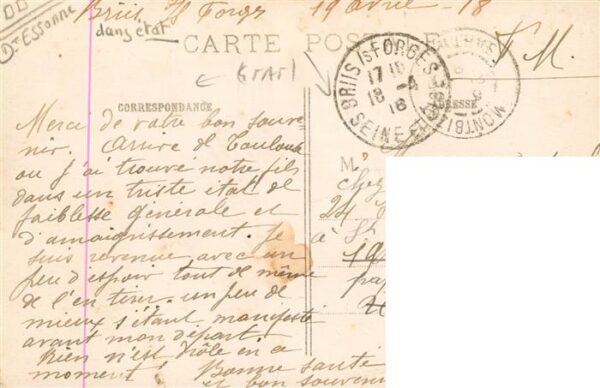 Briis s/ Forges 19 avril - 18
Dt Essonne
dans état
CARTE POS
(état)
F. M.
BRIIS Is FORGES
17 10
18 -4
18
SEINE ET
MONTBI
CORRESPONDANCE
ADRESSE
Merci de votre bon souve
nir. Arrive de Toulouse
ou j'ai trouvé notre fils
dans un triste état de
faiblesse générale et
d'amaigrissement. Je
suis revenue avec un
peu d'espoir tout de même
de l'en tirer. un peu de
mieux s'étant manifesté
avant mon départ
Rien n'est drôle en ce
moment! Bonne santé
et bon souvenir
M.
chez
24
à St
19